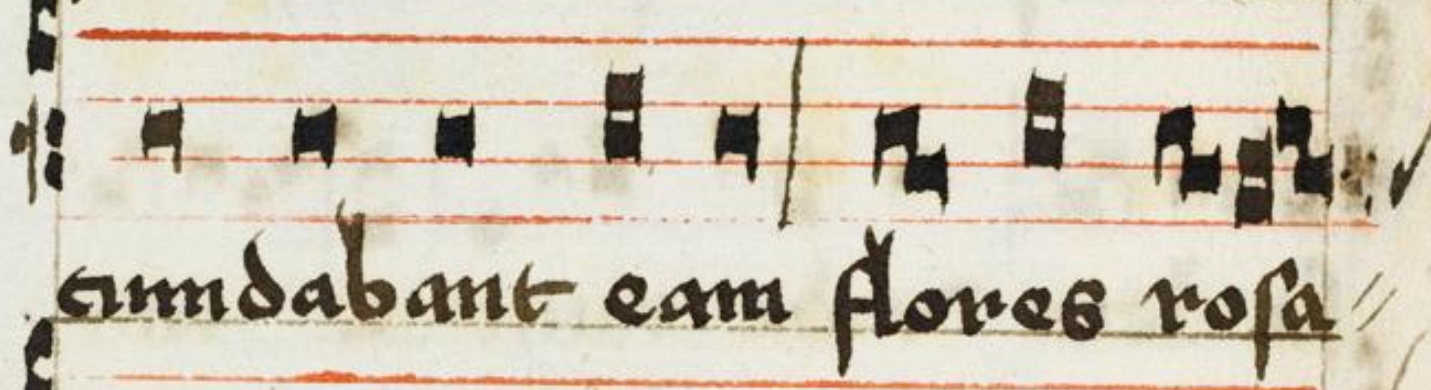 cumdabant eam flores rosa //